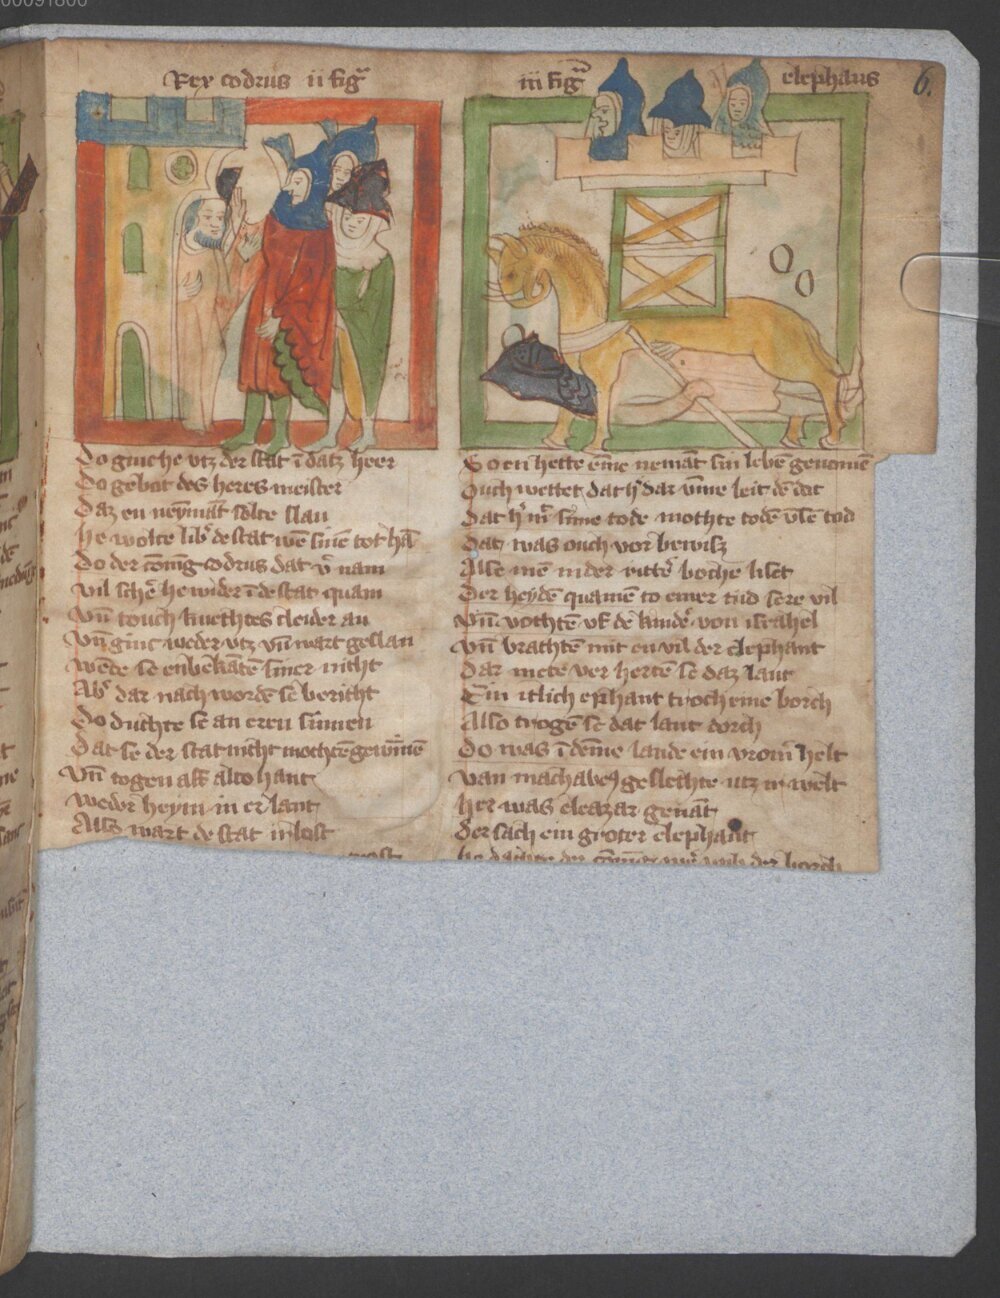 00091800
Rex codrus ii figᵃ
iii figᵃ elephans 6.
Do ginc he vtz der stat ī datz heer
Do gebot des heres meister
Daz en neymāt solte slan
he wolte lib' de stat wē sinē tot hā
Do der cōnig codrus dat v'nam
vil schē he wider ī de stat quam
Vn̄ touch knechtes cleider an
Vn̄ ginc weder vtz vn̄ wart geslan
wēde se enbekātē siner nicht
Ab' dar nach wordē se bericht
Do duchte se an eren sinnen
Dat se der stat nicht mochtē gewīnē
Vn̄ togen alle alto hant
weder heym in er lant
Also wart de stat irlost
So en hette ēme nemāt sin lebē genomē
Ouch wettet dat h' dar vmme leit dē dot
Dat h' m' sime tode mochte todē vnsē tod
Dat was ouch vor bewisz
Alse mē in der ritter bochē liset
Der heydē quamē to einer tiid sere vil
Vn̄ vochtē vf de kinder von israhel
Vn̄ brachtē mit en vil der elephant
Dar mete ver hertē se daz lant
Ein itlich ephant troch eine borch
Also trogē se dat lant dorch
Do was ī dēme lande ein vrom helt
van machabeꝰ geslechte utz irwelt
her was eleazar genāt
der sach ein groter elephant